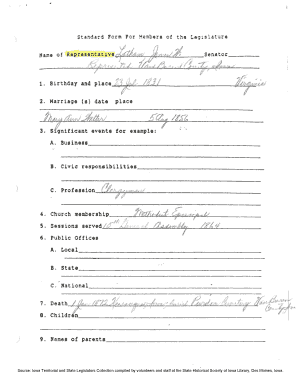 Standard Form For Members of the Legislature
Name of Representative Latham James W. Senator
Represented Van Buren County, Iowa
1. Birthday and place 23 Jul 1831 Virginia
2. Marriage (s) date place
Mary Ann Miller 5 Aug 1856
3. Significant events for example:
A. Business
B. Civic responsibilities
C. Profession Clergyman
4. Church membership Methodist Episcopal
5. Sessions served 10th General Assembly 1864
6. Public Offices
A. Local
B. State
C. National
7. Death 1 Jan Van Buren
8. Children
9. Names of parents
Source: Iowa Territorial and State Legislators Collection compiled by volunteers and staff at the State Historical Society of Iowa Library, Des Moines, Iowa.